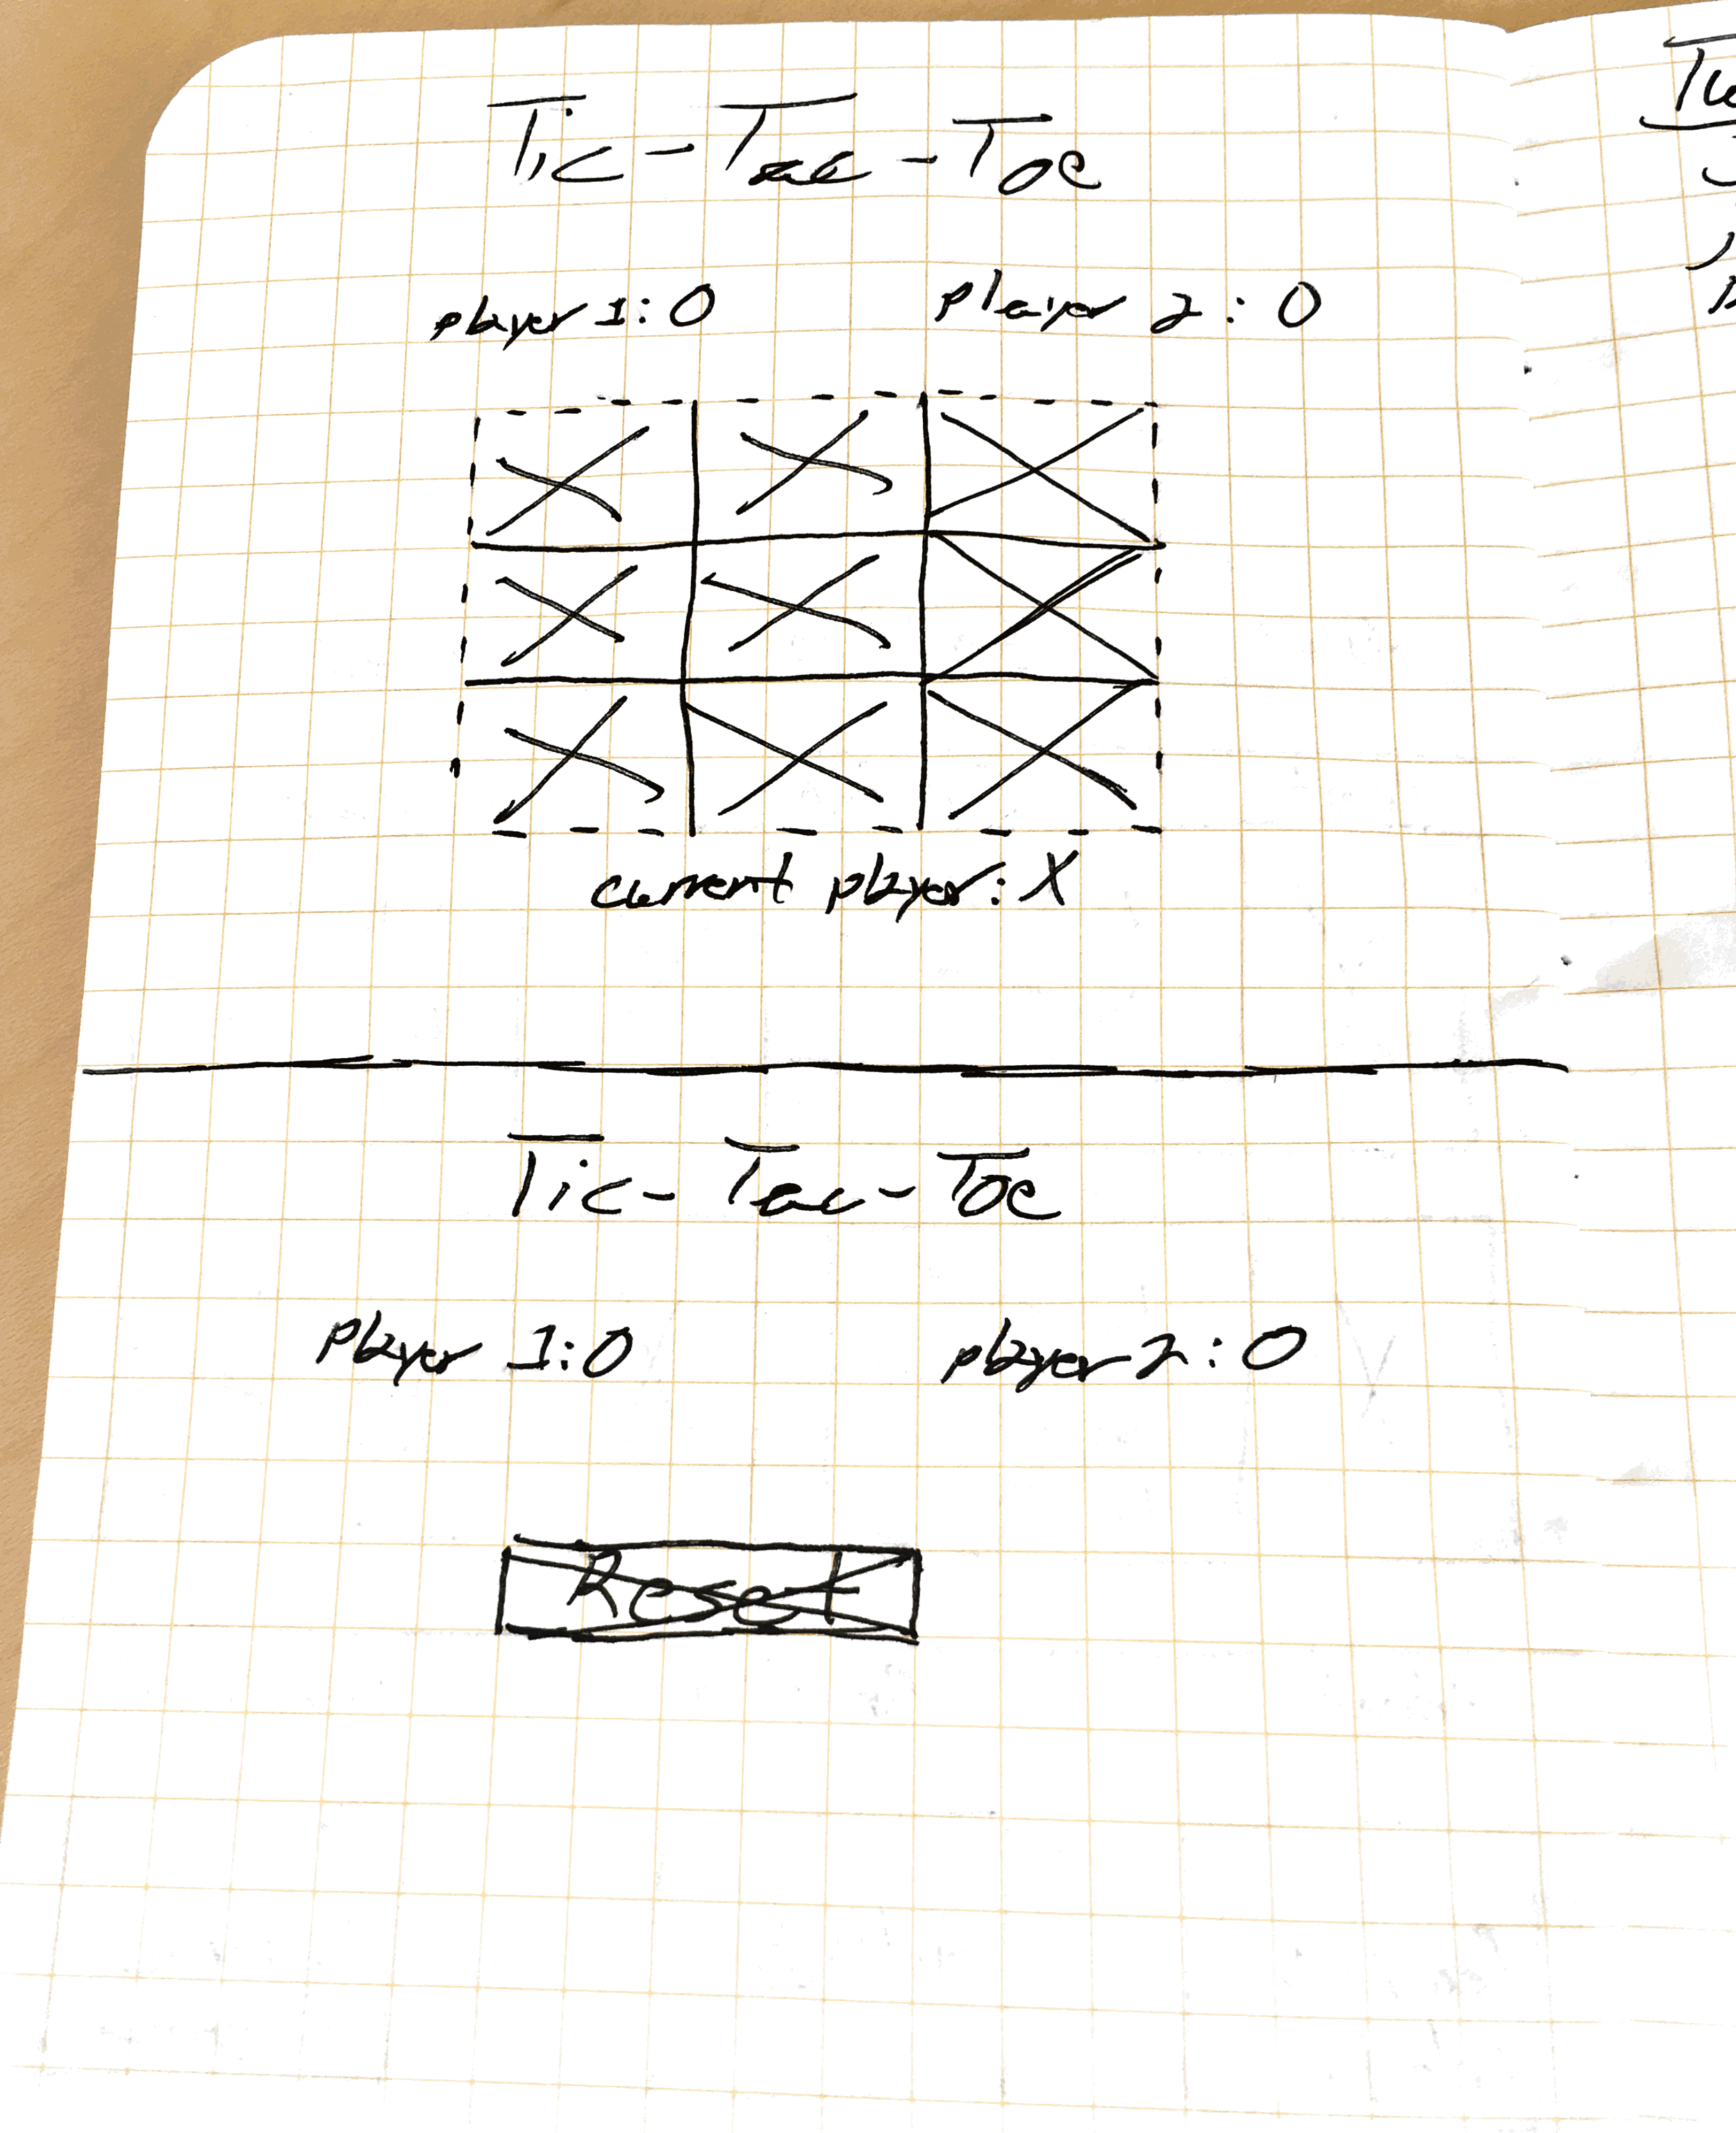 Tic-Tac-Toe
player 1: 0 player 2: 0
current player: X
Tic-Tac-Toe
player 1: 0 player 2: 0
Reset